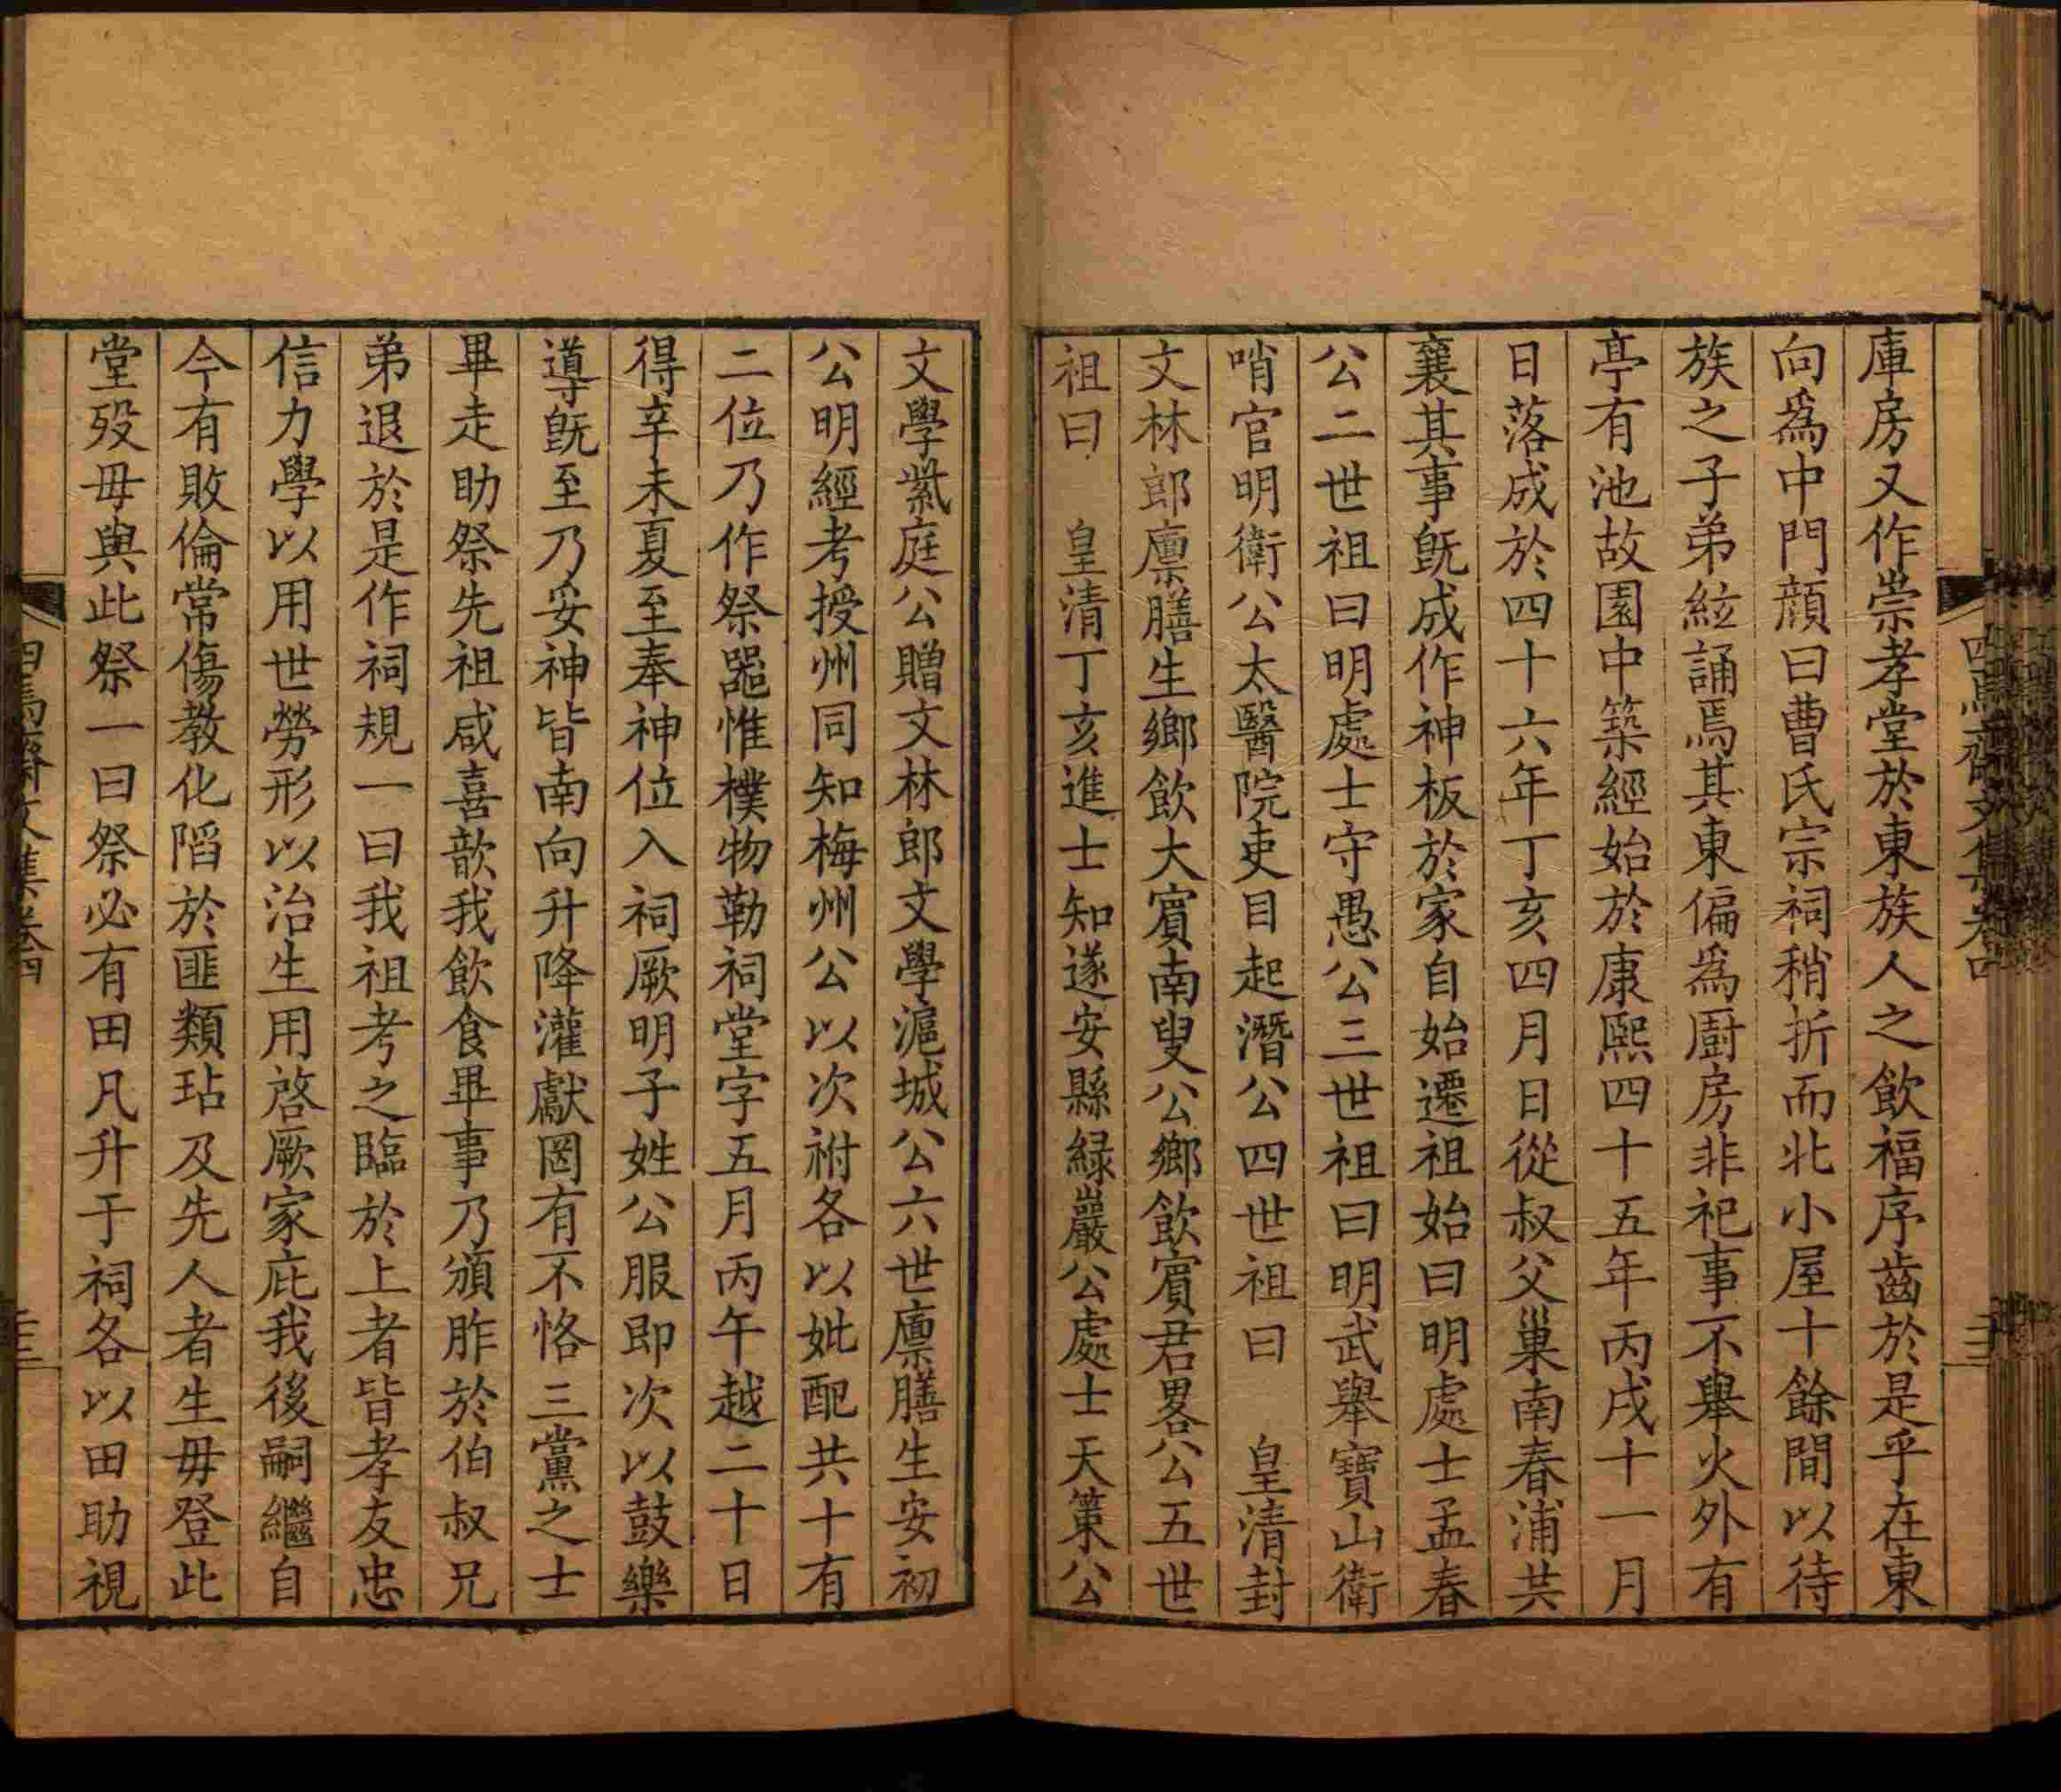 庫房又作崇孝堂於東族人之飲福序齒於是乎在東
向爲中門顔曰曹氏宗祠稍折而北小屋十餘間以待
族之子弟絃誦焉其東偏爲厨房非祀事不舉火外有
亭有池故園中築經始於康熙四十五年丙戌十一月
日落成於四十六年丁亥四月日從叔父巢南春浦共
襄其事旣成作神板於家自始遷祖始曰明處士孟春
公二世祖曰明處士守愚公三世祖曰明武舉寶山衛
哨官明衛公太醫院吏目起潛公四世祖曰 皇清封
文林郎廪膳生鄉飲大賔南叟公鄉飲賔君畧公五世
祖曰 皇清丁亥進士知遂安縣緑巖公處士天篥公
文學紫庭公贈文林郎文學滬城公六世廪膳生安初
公明經考授州同知梅州公以次祔各以妣配共十有
二位乃作祭噐惟樸物勒祠堂字五月丙午越二十日
得辛未夏至奉神位入祠厥明子姓公服即次以鼓樂
導旣至乃妥神皆南向升降灌獻罔有不恪三黨之士
畢走助祭先祖咸喜歆我飲食畢事乃頒胙於伯叔兄
弟退於是作祠規一曰我祖考之臨於上者皆孝友忠
信力學以用世勞形以治生用啓厥家庇我後嗣繼自
今有敗倫常傷教化䧟於匪類玷及先人者生毋登此
堂殁毋與此祭一曰祭必有田凡升于祠各以田助視
四焉齋文集卷四
三